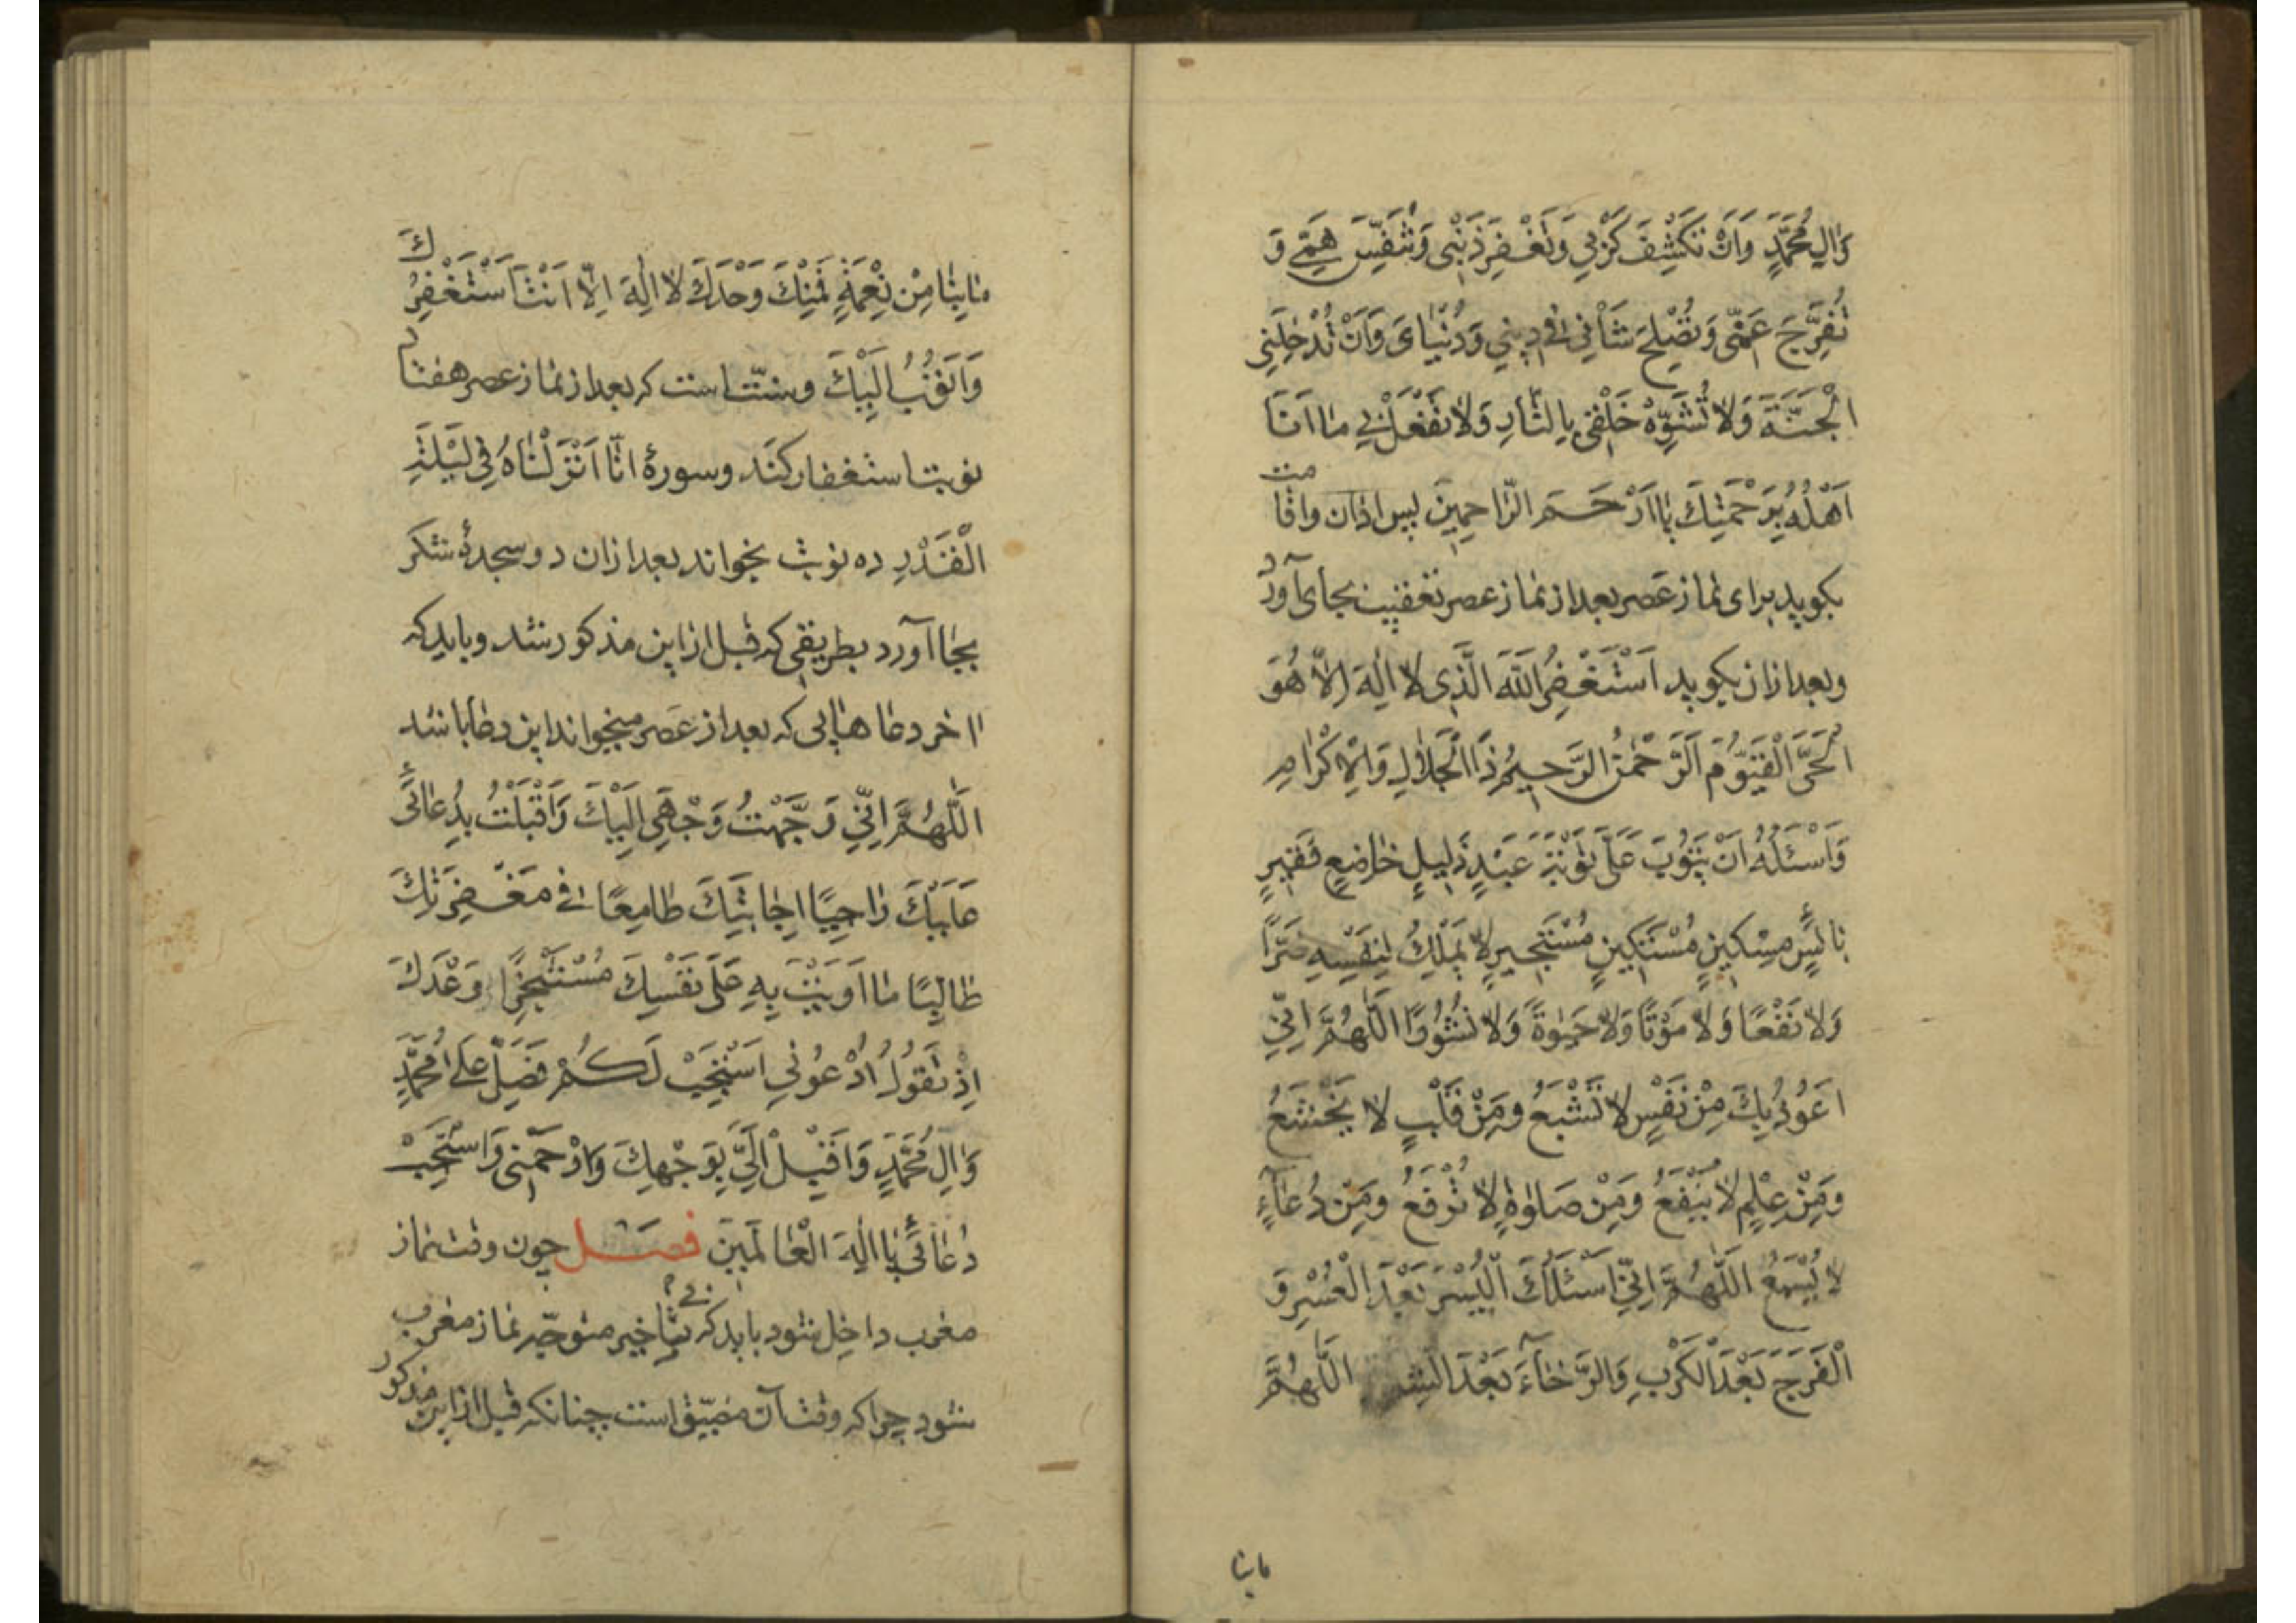 وَالِ مُحَمَّدٍ وَاَنْ تَكْشِفَ كَرْبِي وَتَغْفِرَ ذَنْبِي وَتُنَفِّسَ هَمِّي وَ
تُفَرِّجَ غَمِّي وَتُصْلِحَ شَأْنِي فِي دِينِي وَدُنْيَايَ وَاَنْ تُدْخِلَنِي
الْجَنَّةَ وَلَا تُشَوِّهْ خَلْقِي بِالنَّارِ وَلَا تَفْعَلْ بِي مَا اَنَا
اَهْلُهُ بِرَحْمَتِكَ يَا اَرْحَمَ الرَّاحِمِينَ پس اذان واقامت
بكويد براى نماز عصر بعد از نماز عصر تعقيب بجاى آورد
وبعد ازان بكويد اَسْتَغْفِرُ اللّٰهَ الَّذِي لَا اِلٰهَ اِلَّا هُوَ
الْحَيَّ الْقَيُّومَ الرَّحْمٰنُ الرَّحِيمُ ذَا الْجَلَالِ وَالْاِكْرَامِ
وَاَسْئَلُهُ اَنْ يَتُوبَ عَلَيَّ تَوْبَةَ عَبْدٍ ذَلِيلٍ خَاضِعٍ فَقِيرٍ
بَائِسٍ مِسْكِينٍ مُسْتَكِينٍ مُسْتَجِيرٍ لَا يَمْلِكُ لِنَفْسِهِ ضَرًّا
وَلَا نَفْعًا وَلَا مَوْتًا وَلَا حَيٰوةً وَلَا نُشُورًا اَللّٰهُمَّ اِنِّي
اَعُوذُ بِكَ مِنْ نَفْسٍ لَا تَشْبَعُ وَمِنْ قَلْبٍ لَا يَخْشَعُ
وَمِنْ عِلْمٍ لَا يَنْفَعُ وَمِنْ صَلٰوةٍ لَا تُرْفَعُ وَمِنْ دُعَاءٍ
لَا يُسْمَعُ اَللّٰهُمَّ اِنِّي اَسْئَلُكَ الْيُسْرَ بَعْدَ الْعُسْرِ وَ
الْفَرَجَ بَعْدَ الْكَرْبِ وَالرَّخَاءَ بَعْدَ اَللّٰهُمَّ
مابنا
مَا بِنَا مِنْ نِعْمَةٍ فَمِنْكَ وَحْدَكَ لَا اِلٰهَ اِلَّا اَنْتَ اَسْتَغْفِرُكَ
وَاَتُوبُ اِلَيْكَ وسنّت است كه بعد از نماز عصر هفتاد
نوبت استغفار كند وسورهٔ اِنَّا اَنْزَلْنَاهُ فِي لَيْلَةِ
الْقَدْرِ ده نوبت بخواند بعد ازان دو سجدهٔ شكر
بجا آورد بطريقى كه قبل ازاين مذكور شد وبايد كه
آخر دعاهايى كه بعد از عصر ميخواند اين دعا باشد
اَللّٰهُمَّ اِنِّي وَجَّهْتُ وَجْهِي اِلَيْكَ وَاَقْبَلْتُ بِدُعَائِي
عَلَيْكَ رَاجِيًا اِجَابَتَكَ طَامِعًا فِي مَغْفِرَتِكَ
طَالِبًا مَا اَوَيْتَ بِهِ عَلَى نَفْسِكَ مُسْتَنْجِزًا وَعْدَكَ
اِذْ تَقُولُ اُدْعُونِي اَسْتَجِبْ لَكُمْ فَصَلِّ عَلَى مُحَمَّدٍ
وَالِ مُحَمَّدٍ وَاَقْبِلْ اِلَيَّ بِوَجْهِكَ وَارْحَمْنِي وَاسْتَجِبْ
دُعَائِي يَا اِلٰهَ الْعَالَمِينَ فصل چون وقت نماز
مغرب داخل شود بايد كه بى تأخير متوجّه نماز مغرب
شود چرا كه وقت آن مضيّق است چنانكه قبل ازاين مذكور